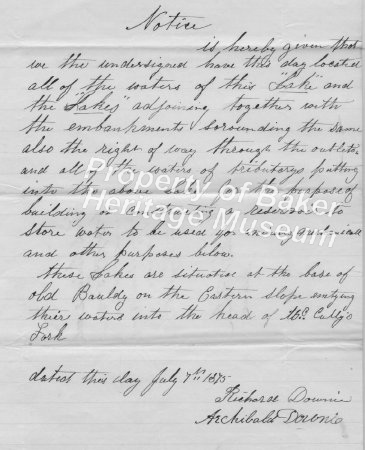 Notice
is hereby given that
we the undersigned have this day located
all of the waters of this "Lake" and
the "Lakes" adjoining together with
the embankments sorounding the same
also the right of way through the outlets
and all the waters of tributarys putting
into the above for the purpose of
building or constructing a Reservoir to
store water to be used for mining
and other purposes below.
these Lakes are situated at the base of
old Bauldy on the Eastern slope emtying
their waters into the head of Mc Cully's
Fork
dated this day July 7th 1875
Richard Downie
Archibald Downie
Property of Baker
Heritage Museum